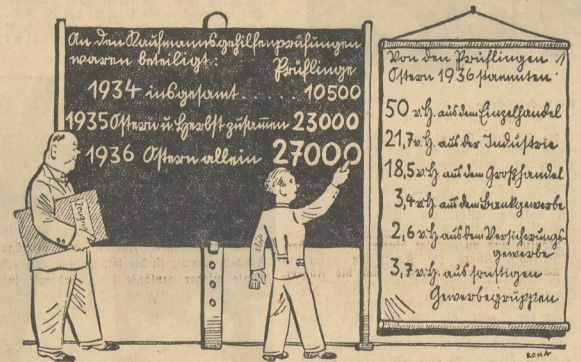 An den Kaufmannsgehilfenprüfungen
waren beteiligt: Prüflinge
1934 insgesamt.... 10500
1935 Ostern u. Herbst zusammen 23000
1936 Ostern allein 27000
Zeugnis
Von den Prüflingen
Ostern 1936 stammten:
50 v.H. aus dem Einzelhandel
21,7 v.H. aus der Industrie
18,5 v.H. aus dem Großhandel
3,4 v.H. aus dem Bankgewerbe
2,6 v.H. aus dem Versicherungs-
gewerbe
3,7 v.H. aus sonstigen
Gewerbegruppen
ROHA